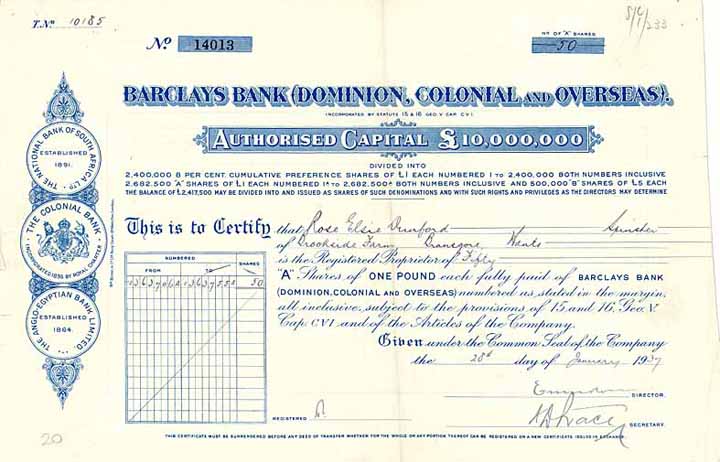 T. No. 10185
No. 14013
No OF "A" SHARES
50
BARCLAYS BANK (DOMINION, COLONIAL AND OVERSEAS).
INCORPORATED BY STATUTE 15 & 16 GEO. V. CAP. CVI.
AUTHORISED CAPITAL £10,000,000
DIVIDED INTO
2,400,000 8 PER CENT. CUMULATIVE PREFERENCE SHARES OF £1 EACH NUMBERED 1 TO 2,400,000 BOTH NUMBERS INCLUSIVE
2,682,500 "A" SHARES OF £1 EACH NUMBERED 1A TO 2,682,500A BOTH NUMBERS INCLUSIVE AND 500,000 "B" SHARES OF £5 EACH
THE BALANCE OF £2,417,500 MAY BE DIVIDED INTO AND ISSUED AS SHARES OF SUCH DENOMINATIONS AND WITH SUCH RIGHTS AND PRIVILEGES AS THE DIRECTORS MAY DETERMINE
THE NATIONAL BANK OF SOUTH AFRICA LTD
ESTABLISHED
1891.
THE COLONIAL BANK
INCORPORATED 1836 BY ROYAL CHARTER
THE ANGLO-EGYPTIAN BANK LIMITED.
ESTABLISHED
1864.
This is to Certify that Rose Elsie Spinster
of Brookside Farm, Bransgore, Hants
is the Registered Proprietor of Fifty
"A" Shares of ONE POUND each fully paid of BARCLAYS BANK
(DOMINION, COLONIAL AND OVERSEAS) numbered as stated in the margin,
all inclusive, subject to the provisions of 15 and 16, Geo. V.
Cap. CVI and of the Articles of the Company.
Given under the Common Seal of the Company
the 28th day of January 1937
NUMBERED
FROM TO SHARES
50
DIRECTOR.
REGISTERED
SECRETARY.
THIS CERTIFICATE MUST BE SURRENDERED BEFORE ANY DEED OF TRANSFER WHETHER FOR THE WHOLE OR ANY PORTION THEREOF CAN BE REGISTERED OR A NEW CERTIFICATE ISSUED IN EXCHANGE.
20